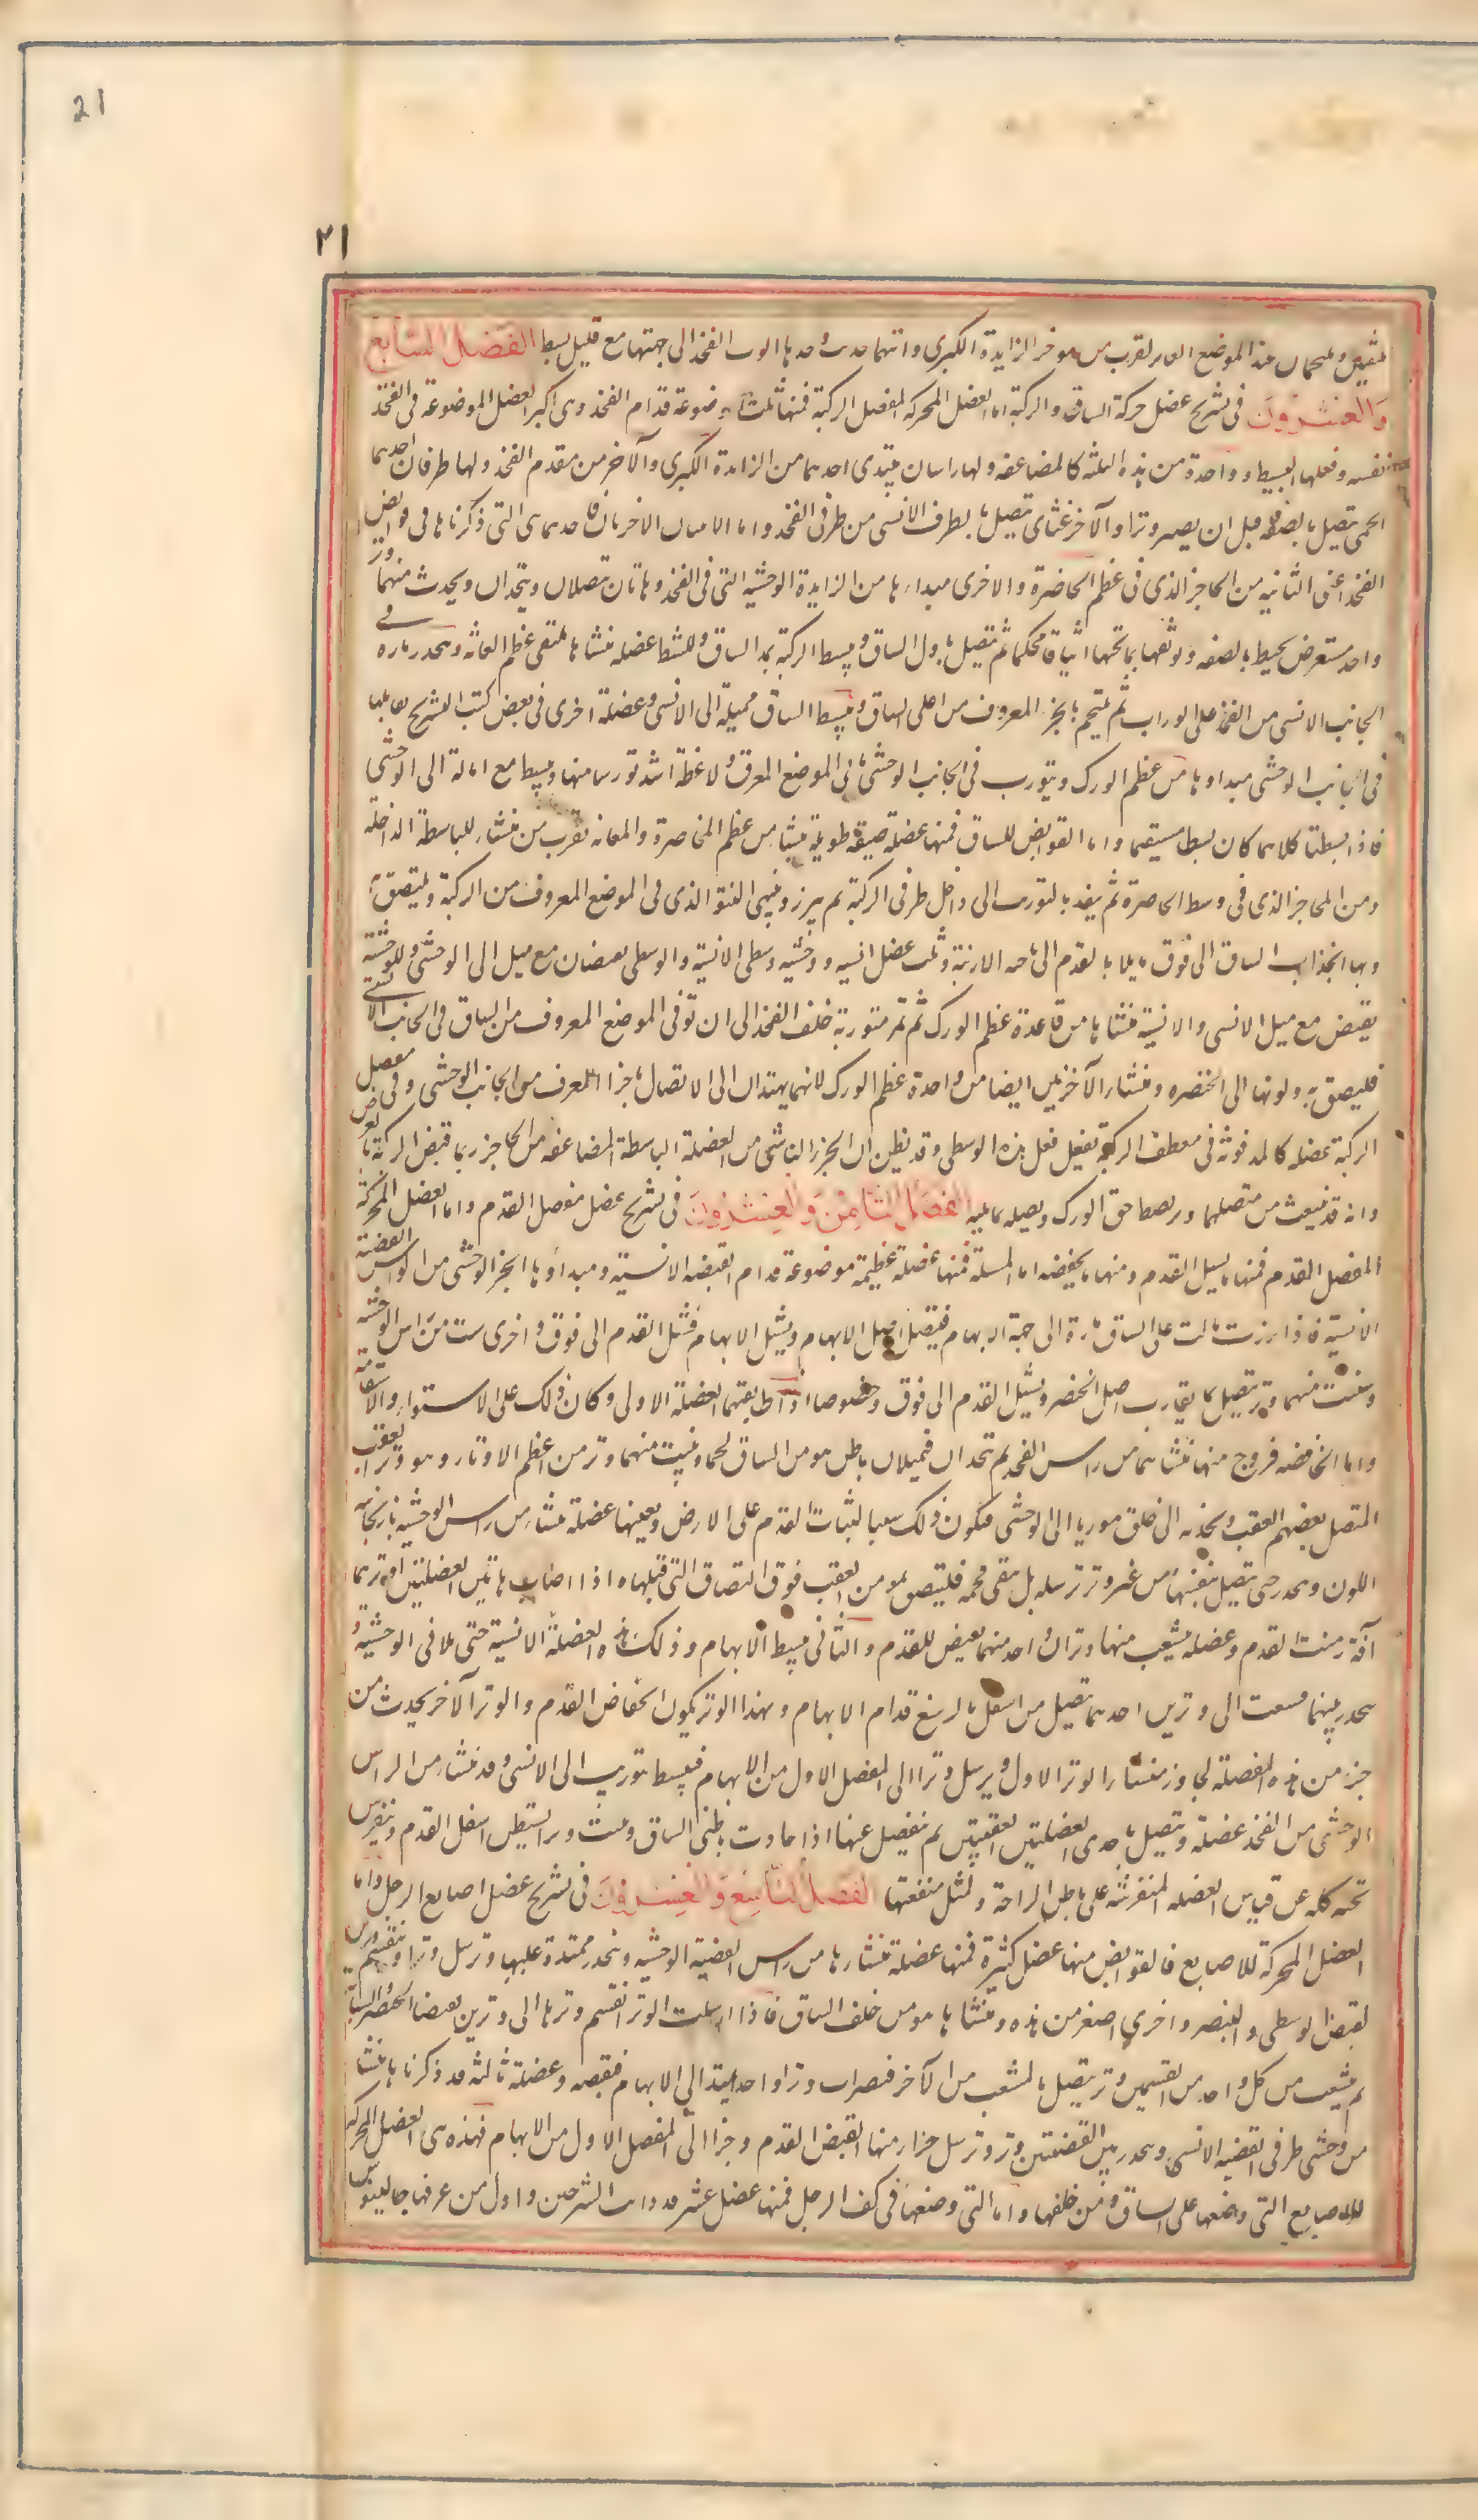 21
٢١
ملتقيين ويلتحمان عند الموضع الغاير بقرب من مؤخر الزايدة الكبرى وايتهما جذبت وحدها الوت الفخذ الى جهتها مع قليل بسط الفصل السابع
والعشرون فى تشريح عضل حركة الساق والركبة اما العضل المحركة لمفصل الركبة فمنها ثلث موضوعة قدام الفخذ وهى اكبر العضل الموضوعة فى الفخذ
نفسه وفعلها البسيط وواحدة من هذه الثلثة كالمضاعفه ولها راسان يبتدى احدهما من الزايدة الكبرى والآخر من مقدم الفخذ ولها طرفان احدهما
لحمى يتصل بالرضفه قبل ان يصير وترا والآخر غشاى يتصل بالطرف الانسى من طرفى الفخذ واما الاثنان الاخريان فاحدهما هى التى ذكرناها فى قوابض
الفخذ اعنى الثانيه من الحاجز الذى فى عظم الخاصرة والاخرى مبداءها من الزايدة الوحشيه التى فى الفخذ وهاتان تتصلان ويتحدان ويحدث منهما وتر
واحد مستعرض يحيط بالرضفه ويوثقها بما تحتها ايثاقا محكما ثم يتصل باول الساق ويبسط الركبة بمد الساق وللبسط عضله منشاها ملتقى عظم العانه وينحدر ماره فى
الجانب الانسى من الفخذ على الوراب ثم يلتحم بالجزء المعروف من اعلى الساق ويبسط الساق مميلة الى الانسى وعضلة اخرى فى بعض كتب التشريح تقابلها
فى الجانب الوحشى مبداوها من عظم الورك ويتورب فى الجانب الوحشى حتى ياتى الموضع المعرق ولا عضلة اشد توريبا منها ويبسط مع امالة الى الوحشى
فاذا بسطتا كلاهما كان بسطا مستقيما واما القوابض للساق فمنها عضلة ضيقة طويلة ينشا من عظم الخاصرة والعانه بقرب من منشاء للباسطة الداخلة
ومن الحاجز الذى فى وسط الخاصرة ثم ينفذ بالتوريب الى داخل طرفى الركبة ثم يبرز وينتهى النتو الذى فى الموضع المعروف من الركبة ويلتصق به
وبها انجذاب الساق الى فوق مايلا بالقدم الى ناحيه الاربية وثلث عضل انسيه ووحشيه ووسطى الانسية والوسطى يقبضان مع ميل الى الوحشى والوحشية
يقبض مع ميل الانسى والانسية منشاها من قاعدة عظم الورك ثم تمر متوربة خلف الفخذ الى ان توافى الموضع المعروف من الساق فى الجانب الانسى
فيلتصق به ولونها الى الخضره ومنشاء الآخريين ايضا من قاعدة عظم الورك لانهما يميلان الى الاتصال بالجزء المعرف من الجانب الوحشى وفى مفصل
الركبة عضله كالمدفونة فى معطف الركبة يفعل فعل هذه الوسطى وقد يظن ان الجزء الناشى من العضلة الباسطة المضاعفه من الحاجز ربما قبض الركبة بالعرض
وانه قد ينبعث من متصلهما وتر يضبط حق الورك ويصله بما يليه الفصل الثامن والعشرون فى تشريح عضل مفصل القدم واما العضل المحركة
لمفصل القدم فمنها ما يشيل القدم ومنها ما يخفضه اما المشيلة فمنها عضلة عظيمة موضوعة قدام القصبه الانسيه ومبداوها الجزء الوحشى من راس القصبة
الانسية فاذا برزت مالت على الساق مارة الى جهة الابهام فيتصل باصل الابهام ويشيل الابهام فتشيل القدم الى فوق واخرى ينبت من راس الوحشيه
وينبت منهما وتر يتصل بما يقارب اصل الخنصر ويشيل القدم الى فوق وخصوصا اذا طابقتها العضلة الاولى وكان ذلك على الاستواء والاستقامة
واما الخافضه فزوج منها منشاهما من راس الفخذ ثم يتحدان فيملان باطن مؤخر الساق لحما وينبت منهما وتر من اعظم الاوتار وهو وتر العقب
المتصل بعظم العقب ويجذبه الى خلق موربا الى الوحشى فيكون ذلك سببا لثبات القدم على الارض ويعينها عضلة ينشاء من راس الوحشيه باذنجانيه
اللون وينحدر حتى يتصل بنفسها من غير وتر ترسله بل يبقى لحميه فيلتصق بمؤخر العقب فوق التصاق التى قبلها واذا اصاب هاتين العضلتين او وترهما
آفة زمنت القدم وعضله يتشعب منها وتران واحد منهما يقبض للقدم والثانى يبسط الابهام وذلك ان هذه العضلة الانسية حتى تلاقى الوحشيه و
ينحدر بينهما فيتشعب الى وترين احدهما يتصل من اسفل بالرسغ قدام الابهام وبهذا الوتر يكون انخفاض القدم والوتر الآخر يحدث من
جزء من هذه المفصلة تجاوز منشاء الوتر الاول ويرسل وترا الى المفصل الاول من الابهام فيبسط بتوريب الى الانسى وقد ينشاء من الراس
الوحشى من الفخذ عضلة ويتصل باحدى العضلتين العقبيتين ثم ينفصل عنها اذا حاذت باطن الساق وينبت وترا يستبطن اسفل القدم وينفرش
تحته كله عن قياس العضله المنفرشه على باطن الراحة ولمثل منفعتها الفصل التاسع والعشرون فى تشريح عضل اصابع الرجل واما
العضل المحركة للاصابع فالقوابض منها عضل كثيرة فمنها عضلة منشاءها من راس القصبة الوحشيه وينحدر ممتدة عليها وترسل وترا وينقسم الى وترين
لقبض الوسطى والبنصر واخرى اصغر من هذه ومنشاها مؤخر من خلف الساق فاذا ارسلت الوتر انقسم وترها الى وترين يقبضا الخنصر والسبابة
ثم يتشعب من كل واحد من القسمين وتر يتصل بالمتشعب من الآخر فيصيران وترا واحدا يمتد الى الابهام فيقبضه وعضلة ثالثه قد ذكرناها ينشا
من وحشى طرفى القصبه الانسى وينحدر بين القصبتين وتر وترسل جزا منها لقبض القدم وجزا الى المفصل الاول من الابهام فهذه هى العضل المحركة
للاصابع التى وضعها على الساق ومن خلفها واما التى وضعها فى كف الرجل فمنها عضل عشر قد فاتت المشرحين واول من عرفها جالينوس